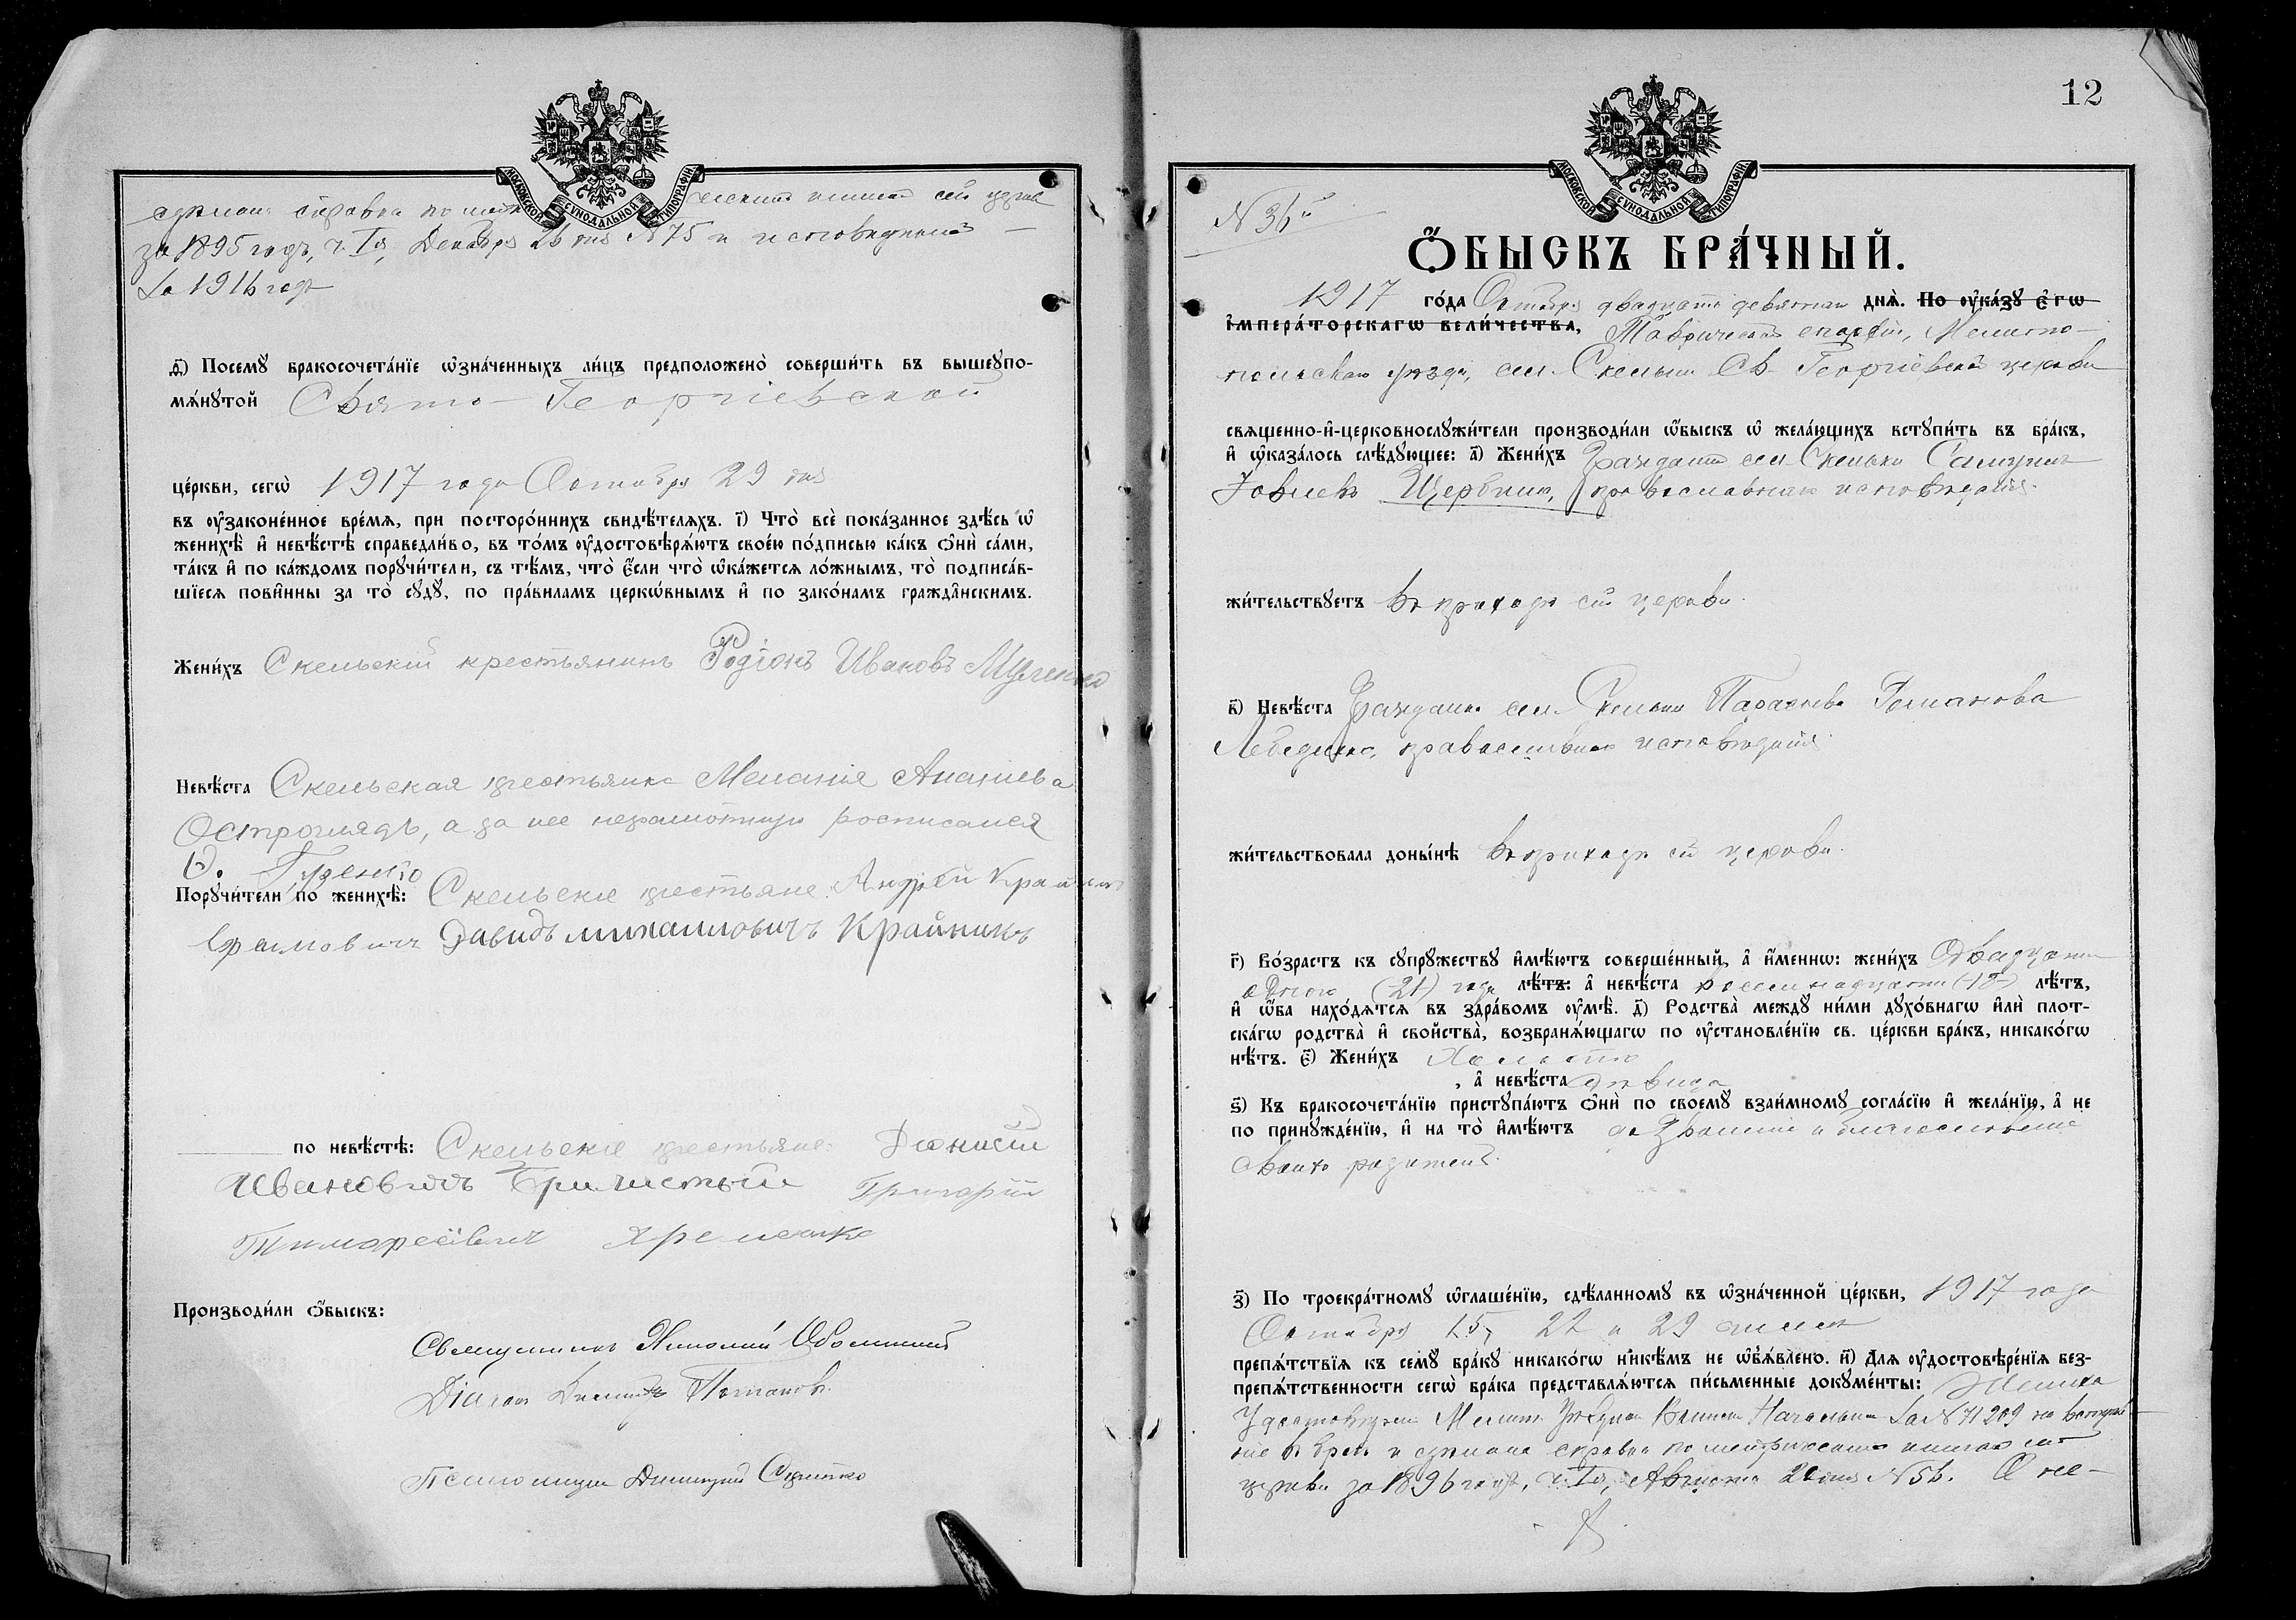 МОСКОВСКОЙ СѴНОДАЛЬНОЙ ТИПОГРАФІИ
справка по
за 1895 годъ, ч. Iя, Декабря 26 дня №75 и исповѣдной
за 1916 годъ
ѳ҃) Посемꙋ̀ бракосочета́нїе ѡ҆зна́ченныхъ ли́цъ предположено̀ соверши́ть въ вышеꙋпо-
мѧ́нꙋтой Свято-Георгіевской
це́ркви, сегѡ̀ 1917 года Октября 29 дня
въ ᲂу҆законе́нное вре́мѧ, при посторо́ннихъ свидѣ́телѧхъ. і҃) Что̀ всѐ пока́занное здѣ́сь ѡ҆
женихѣ̀ и҆ невѣ́стѣ справедли́во, въ то́мъ ᲂу҆достовѣрѧ́ютъ свое́ю по́дписью ка́къ ѻ҆нѝ са́ми,
та́къ и҆ по ка́ждомъ порꙋчи́тели, съ тѣ́мъ, что̀ є҆́сли что̀ ѡ҆ка́жетсѧ ло́жнымъ, то̀ подписа́в-
шїесѧ пови́нны за то̀ сꙋдꙋ̀, по пра́виламъ церко́внымъ и҆ по зако́намъ гражда́нскимъ.
Жени́хъ Скельскій крестьянинъ Родіонъ Ивановъ
Невѣ́ста Скельская крестьянка Меланія Ананіева
Остроглядъ, а за нее неграмотную росписался
Гуденко
Порꙋчи́тели по женихѣ̀: Скельскіе крестьяне: Андрей
Давидъ михаиловичъ Крайникъ
по невѣ́стѣ: Скельскіе крестьяне: Діонисій
Ивановичъ Григорій
Тимофеевичъ Яременко
Производи́ли ѻ҆́быскъ:
Священникъ Николай
Діаконъ Димитрій Потаповъ.
Псаломщикъ Димитрій
12
МОСКОВСКОЙ СѴНОДАЛЬНОЙ ТИПОГРАФІИ
№36й
Ѻ҆́БЫСКЪ БРА́ЧНЫЙ.
1917 го́да Октября двадцать девятаго днѧ̀. По ᲂу҆ка́зꙋ є҆гѡ̀
і҆мпера́торскагѡ вели́чества, Таврической епархіи, Мелито-
польскаго уѣзда, сел. Скельки Св. Георгіевской церкви
свѧще́нно-и҆-церковнослꙋжи́тели производи́ли ѡ҆́быскъ ѡ҆ жела́ющихъ встꙋпи́ть въ бра́къ,
и҆ ѡ҆каза́лось слѣ́дꙋющее: а҃) Жени́хъ Гражданинъ сел. Скельки Самуилъ
Іовлевъ Щербина, православнаго исповѣданія.
жи́тельствꙋетъ въ приходѣ сей церкви.
в҃) Невѣ́ста Гражданка сел. Скельки Параскева Романова
православнаго исповѣданія.
жи́тельствовала доны́нѣ въ приходѣ сей церкви.
г҃) Во́зрастъ къ сꙋпрꙋ́жествꙋ и҆мѣ́ютъ соверше́нный, а҆ и҆́меннѡ: жени́хъ Двадцать
(21) годъ лѣ́тъ: а҆ невѣ́ста восемнадцати (18) лѣ́тъ,
и҆ ѡ҆́ба нахо́дѧтсѧ въ здра́вомъ ᲂу҆мѣ̀. д҃) Родства̀ междꙋ̀ ни́ми дꙋхо́внагѡ и҆лѝ плот-
ска́гѡ родства̀ и҆ сво́йства, возбранѧ́ющагѡ по ᲂу҆становле́нїю св. це́ркви бра́къ, никако́гѡ
нѣ́тъ. є҃) Жени́хъ Холостъ
, а҆ невѣ́ста дѣвица
ѕ҃) Къ бракосочета́нїю пристꙋпа́ютъ ѻ҆нѝ по своемꙋ̀ взаи́мномꙋ согла́сїю и҆ жела́нїю, а҆ не
по принꙋжде́нїю, и҆ на то̀ и҆мѣ́ютъ дозволеніе и благословеніе
своихъ родителей.
з҃) По троекра́тномꙋ ѡ҆глаше́нїю, сдѣ́ланномꙋ въ ѡ҆зна́ченной це́ркви, 1917 года
Октября 15, 22 и 29 чиселъ
препѧ́тствїѧ къ семꙋ̀ бра́кꙋ никако́гѡ никѣ́мъ не ѡ҆б̾ѧ́влено. и҃) Длѧ̀ ᲂу҆достовѣре́нїѧ без-
препѧ́тственности сегѡ̀ бра́ка представлѧ́ютсѧ пи́сьменные докꙋме́нты: Жениха
Удостовѣреніе Мелит. Уѣздн. Воинск. Начальн. за №71209 на вступле-
ніе въ бракъ и справка по метрическимъ книгамъ сей
церкви за 1896 годъ, ч. Iя, Августа №56. О не-